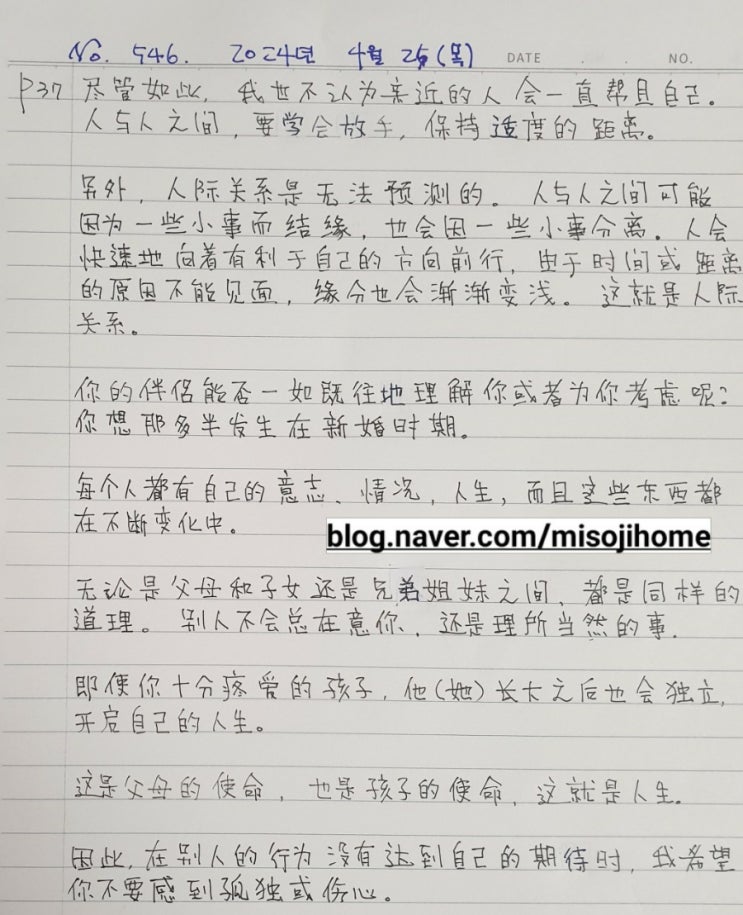 No. 546. 2024년 4월 25(목) DATE . . NO.
P37 尽管如此, 我也不认为亲近的人会一直帮且自己。
人与人之间, 要学会放手, 保持适度的距离。
另外, 人际关系是无法预测的。人与人之间可能
因为一些小事而结缘, 也会因一些小事分离。人会
快速地向着有利于自己的方向前行, 由于时间或距离
的原因不能见面, 缘分也会渐渐变浅。这就是人际
关系。
你的伴侣能否一如既往地理解你或者为你考虑呢?
你想那多半发生在新婚时期。
每个人都有自己的意志、情况, 人生, 而且这些东西都
在不断变化中。
blog.naver.com/misojihome
无论是父母和子女还是兄弟姐妹之间, 都是同样的
道理。别人不会总在意你, 还是理所当然的事.
即使你十分疼爱的孩子, 他(她)长大之后也会独立,
开启自己的人生。
这是父母的使命, 也是孩子的使命, 这就是人生.
因此, 在别人的行为没有达到自己的期待时, 我希望
你不要感到孤独或伤心。